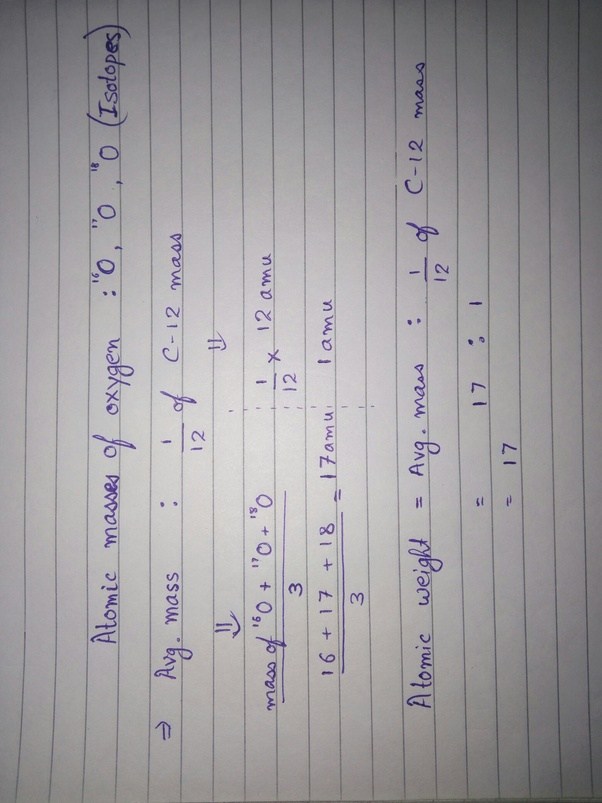 Atomic masses of oxygen : ¹⁶O, ¹⁷O, ¹⁸O (Isotopes)
⇒ Avg. mass : 1/12 of C-12 mass
⇓ ⇓
mass of ¹⁶O + ¹⁷O + ¹⁸O / 3 1/12 × 12 amu
16 + 17 + 18 / 3 = 17amu 1 amu
Atomic weight = Avg. mass : 1/12 of C-12 mass
= 17 : 1
= 17